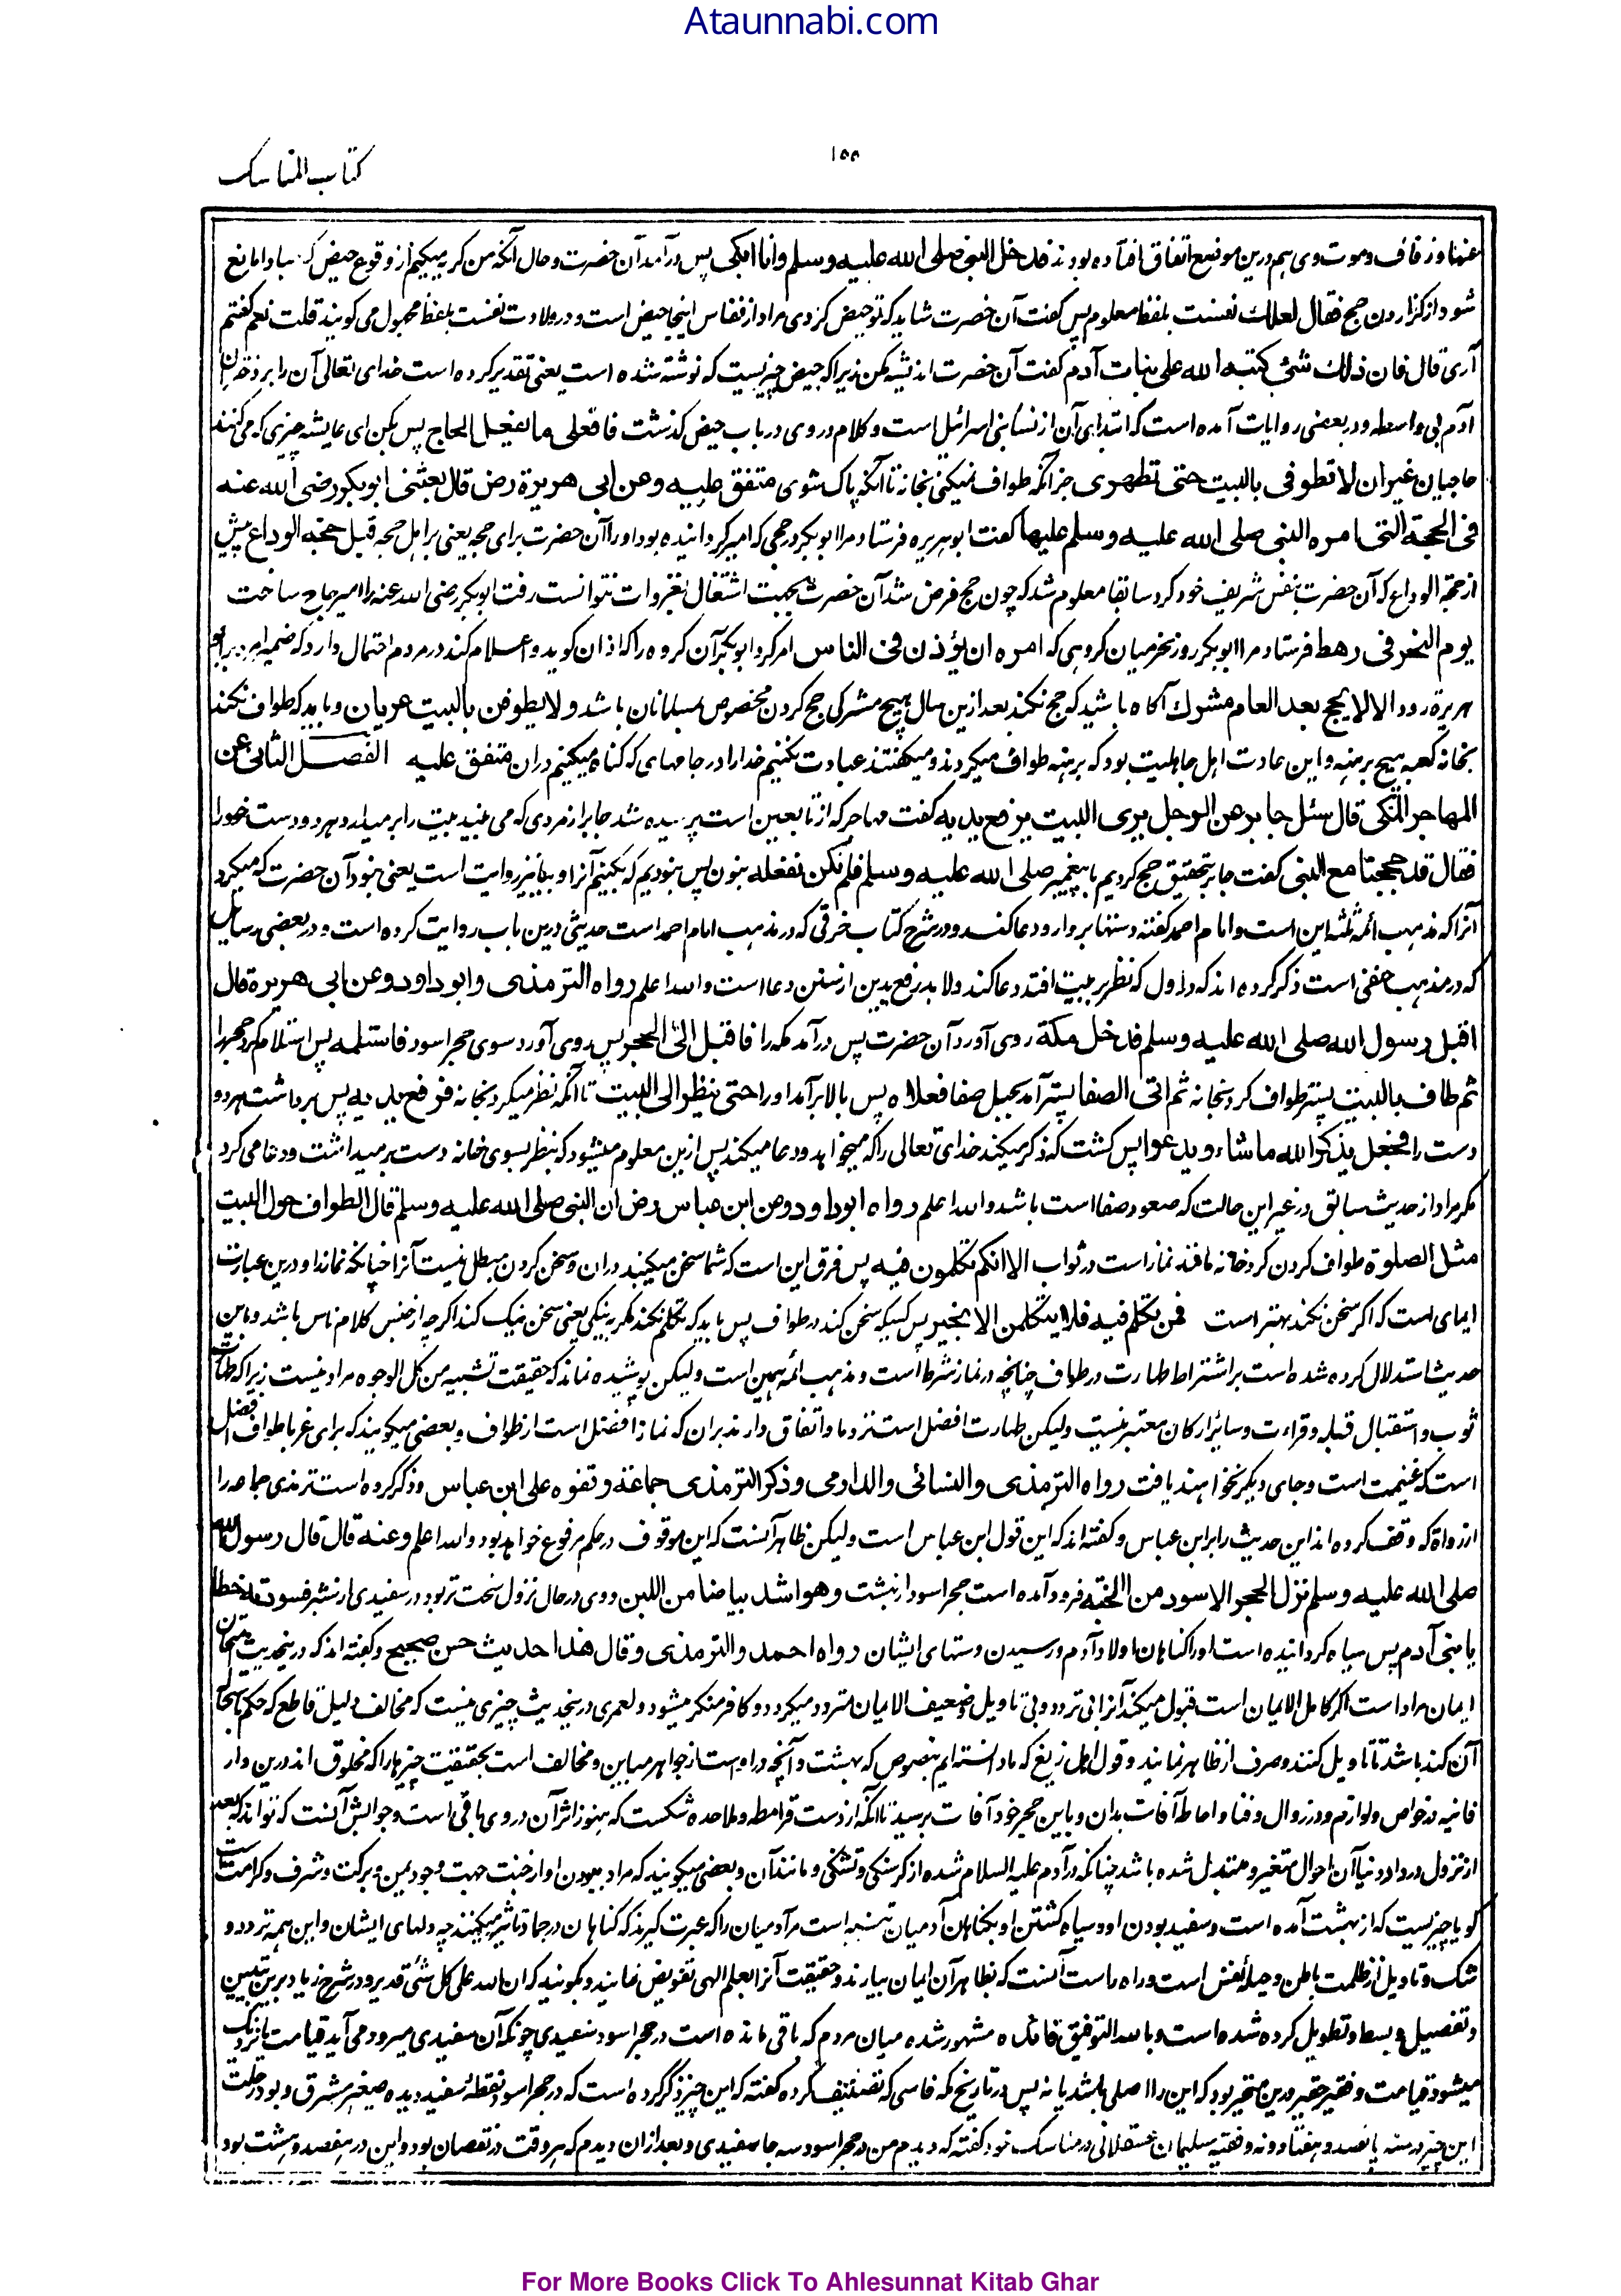 Ataunnabi.com
کتاب المناسک
۱۵۵
عنها وزفاف وموت وی هم درین موضع اتفاق افتاده بود ند فدخل النبی صلی الله علیه وسلم وانا ابکی پس درآمد آن حضرت وحال آنکه من گریه میکنم از وقوع حیض که مبادا مانع
شود از گزاردن حج فقال لعلک نفست بلفظ معلوم پس گفت آن حضرت شاید که تو حیض کردی مراد از نفاس اینجا حیض است و در ولادت نفست بلفظ مجهول می گویند قلت نعم گفتم
آری قال فان ذلک شئ کتبه الله علی بنات آدم گفت آن حضرت اندیشه مکن زیرا که حیض چیزیست که نوشته شده است یعنی تقدیر کرده است خدای تعالی آن را بر دختران
آدم بی واسطه و در بعضی روایات آمده است که ابتدای آن از نساء بنی اسرائیل است و کلام در وی در باب حیض گذشت فافعلی ما یفعل الحاج پس بکن ای عایشه چیزی که می کنند
حاجیان غیر ان لا تطوفی بالبیت حتی تطهری جز آنکه طواف نمیکنی بخانه تا آنکه پاک شوی متفق علیه وعن ابی هریرة رض قال بعثنی ابوبکر رضی الله عنه
فی الحجة التی امره النبی صلی الله علیه وسلم علیها گفت ابو هریره فرستاد مرا ابوبکر در حجی که امیر گردانیده بود او را آن حضرت برای حجه یعنی بر اهل حجه قبل حجة الوداع پیش
از حجة الوداع که آن حضرت بنفس شریف خود کرد سابقا معلوم شد که چون حج فرض شد آن حضرت بجهت اشتغال بغزوات نتوانست رفت ابوبکر رضی الله عنه را امیر حاج ساخت
یوم النحر فی رهط فرستاد مرا ابوبکر روز نحر میان گروهی که امره ان یؤذن فی الناس امر کرد ابوبکر آن گروه را که اذان گوید و اعلام کند در مردم احتمال دارد که ضمیر امره برابو
هریرة رود الا لا یحج بعد العام مشرک آگاه باشید که حج نکند بعد ازین سال هیچ مشرکی حج کردن مخصوص مسلمانان باشد ولا یطوفن بالبیت عریان و باید که طواف نکند
بخانه کعبه هیچ برهنه و این عادت اهل جاهلیت بود که برهنه طواف میکردند و میگفتند عبادت نکنیم خدا را در جامهای که گناه میکنیم دران متفق علیه الفصل الثانی عن
المهاجر المکی قال سئل جابر عن الرجل یری البیت یرفع یدیه گفت مهاجر که از تابعین است پرسیده شد جابر از مردی که می بیند بیت را بر میدارد هر دو دست خود را
فقال قد حججنا مع النبی گفت جابر بتحقیق حج کردیم با پیغمبر صلی الله علیه وسلم فلم نکن نفعله بنون پس نبودیم که بکنیم آنرا و بیا نیز روایت است یعنی نبود آن حضرت که میکرد
آنرا که مذهب ائمه ثلثه این است و امام احمد گفته دستها بردارد و دعا کند و در شرح کتاب خرقی که در مذهب امام احمد است حدیثی درین باب روایت کرده است و در بعضی رسایل
که در مذهب حنفی است ذکر کرده اند که در اول که نظر بر بیت افتد دعا کند ولابد رفع یدین از سنن دعا است والله اعلم رواه الترمذی وابو داود وعن ابی هریرة قال
اقبل رسول الله صلی الله علیه وسلم فدخل مکة روی آورد آن حضرت پس درآمد مکه را فاقبل الی الحجر پس روی آورد سوی حجر اسود فاستلمه پس استلام کرد حجر را
ثم طاف بالبیت پستر طواف کرد بخانه ثم اتی الصفا پستر آمد بجبل صفا فعلاه پس بالا برآمد او را حتی ینظر الی البیت تا آنکه نظر میکرد بخانه فرفع یدیه پس برداشت هر دو
دست را فجعل یذکر الله ما شاء ویدعو پس گشت که ذکر میکند خدای تعالی را که میخواهد و دعا میکند پس ازین معلوم میشود که بنظر بسوی خانه دست بر میداشت و دعا می کرد
مگر مراد از حدیث سابق در غیر این حالت که صعود صفا است باشد والله اعلم رواه ابوداود وعن ابن عباس رض ان النبی صلی الله علیه وسلم قال الطواف حول البیت
مثل الصلوة طواف کردن گرد خانه مانند نماز است در ثواب الا انکم تتکلمون فیه پس فرق این است که شما سخن میکنید دران و سخن کردن مبطل نیست آنرا چنانکه نماز را و درین عبارت
ایمای است که اگر سخن نکند بهتر است فمن تکلم فیه فلا یتکلمن الا بخیر پس کسیکه سخن کند در طواف پس باید که تکلم نکند مگر به نیکی یعنی سخن نیک کند اگرچه از جنس کلام ناس باشد و باین
حدیث استدلالی کرده شده است بر اشتراط طهارت در طواف چنانچه در نماز شرط است و مذهب ائمه همین است ولیکن پوشیده نماند که حقیقت تشبیه من کل الوجوه مراد نیست زیرا که طهارت
ثوب و استقبال قبله و قراءت و سائر ارکان معتبر نیست ولیکن طهارت افضل است نزد ما و اتفاق دارند بران که نماز افضل است از طواف و بعضی میگویند که برای غربا طواف افضل
است که غنیمت است و جای دیگر نخواهند یافت رواه الترمذی والنسائی والدارمی وذکر الترمذی جماعة وقفوه علی ابن عباس و ذکر کرده است ترمذی جماعه را
از رواة که وقف کرده اند این حدیث را بر ابن عباس و گفته اند که این قول ابن عباس است ولیکن ظاهر آنست که این موقوف در حکم مرفوع خواهد بود والله اعلم وعنه قال قال رسول الله
صلی الله علیه وسلم نزل الحجر الاسود من الجنة فرود آمده است حجر اسود از بهشت وهو اشد بیاضا من اللبن و وی در حال نزول سخت تر بود در سفیدی از شیر فسودته خطا
یا بنی آدم پس سیاه گردانیده است او را گناهان اولاد آدم و رسیدن دستهای ایشان رواه احمد والترمذی وقال هذا حدیث حسن صحیح و گفته اند که درینحدیث امتحان
ایمان مراد است اگر کامل الایمان است قبول میکند آنرا بی تردد و بی تاویل و ضعیف الایمان متردد میگردد و کافر منکر میشود ولعمری درینحدیث چیزی نیست که مخالف دلیل قاطع که حکم باستحاله
آن کند باشد تا تاویل کنند و صرف از ظاهر نمایند و قول اهل زیغ که ما دانسته ایم بنصوص که بهشت و آنچه دران است از جواهر مباین و مخالف است بحقیقت چیزها را که مخلوق اند درین دار
فانیه در خواص و لوازم و در زوال و فنا و احاطه آفات بدان و باین حجر خود آفات برسید تا آنکه از دست قرامطه و ملاحده شکست که هنوز اثر آن در وی باقی است و جوابش آنست که تواند که بعد
از نزول در دار دنیا آن احوال متغیر و متبدل شده باشد چنانکه در آدم علیه السلام شده از گرسنگی و تشنگی و مانند آن و بعضی میگویند که مراد ببودن او از جنت جهت وجود یمن و برکت و شرف و کرامت است
گویا چیزیست که از بهشت آمده است و سفید بودن او و سیاه گشتن او بگناهان آدمیان تنبیه است مر آدمیان را که عبرت گیرند که گناهان در جماد تاثیر میکنند چه دلهای ایشان و این همه تردد و
شک و تاویل از ظلمت باطن و حیله نفس است و راه راست آنست که بظاهر آن ایمان بیارند و حقیقت آنرا بعلم الهی تفویض نمایند و بگویند که ان الله علی کل شئ قدیر و در شرح زیاده برین تبیین
و تفصیل و بسط و تطویل کرده شده است وبالله التوفیق فائده مشهور شده میان مردم که باقی مانده است در حجر اسود سفیدی چونکه آن سفیدی میرود می آید قیامت یا نزدیک
میشود قیامت و فقیر حقیر درین متحیر بود که این را اصلی باشد یا نه پس در تاریخ مکه فاسی که تصنیف کرده گفته که این چیز ذکر کرده است که در حجر اسود نقطه سفید دیده صغیر مشرق و بود رحلت
این چیز در سنه پانصد و هفتاد و نه و فقیه سلیمان عسقلانی در مناسک خود گفته که دیدم من در حجر اسود سه جا سفیدی و بعد ازان دیدم که هر وقت در نقصان بود و این در هفصد و هشت بود
For More Books Click To Ahlesunnat Kitab Ghar